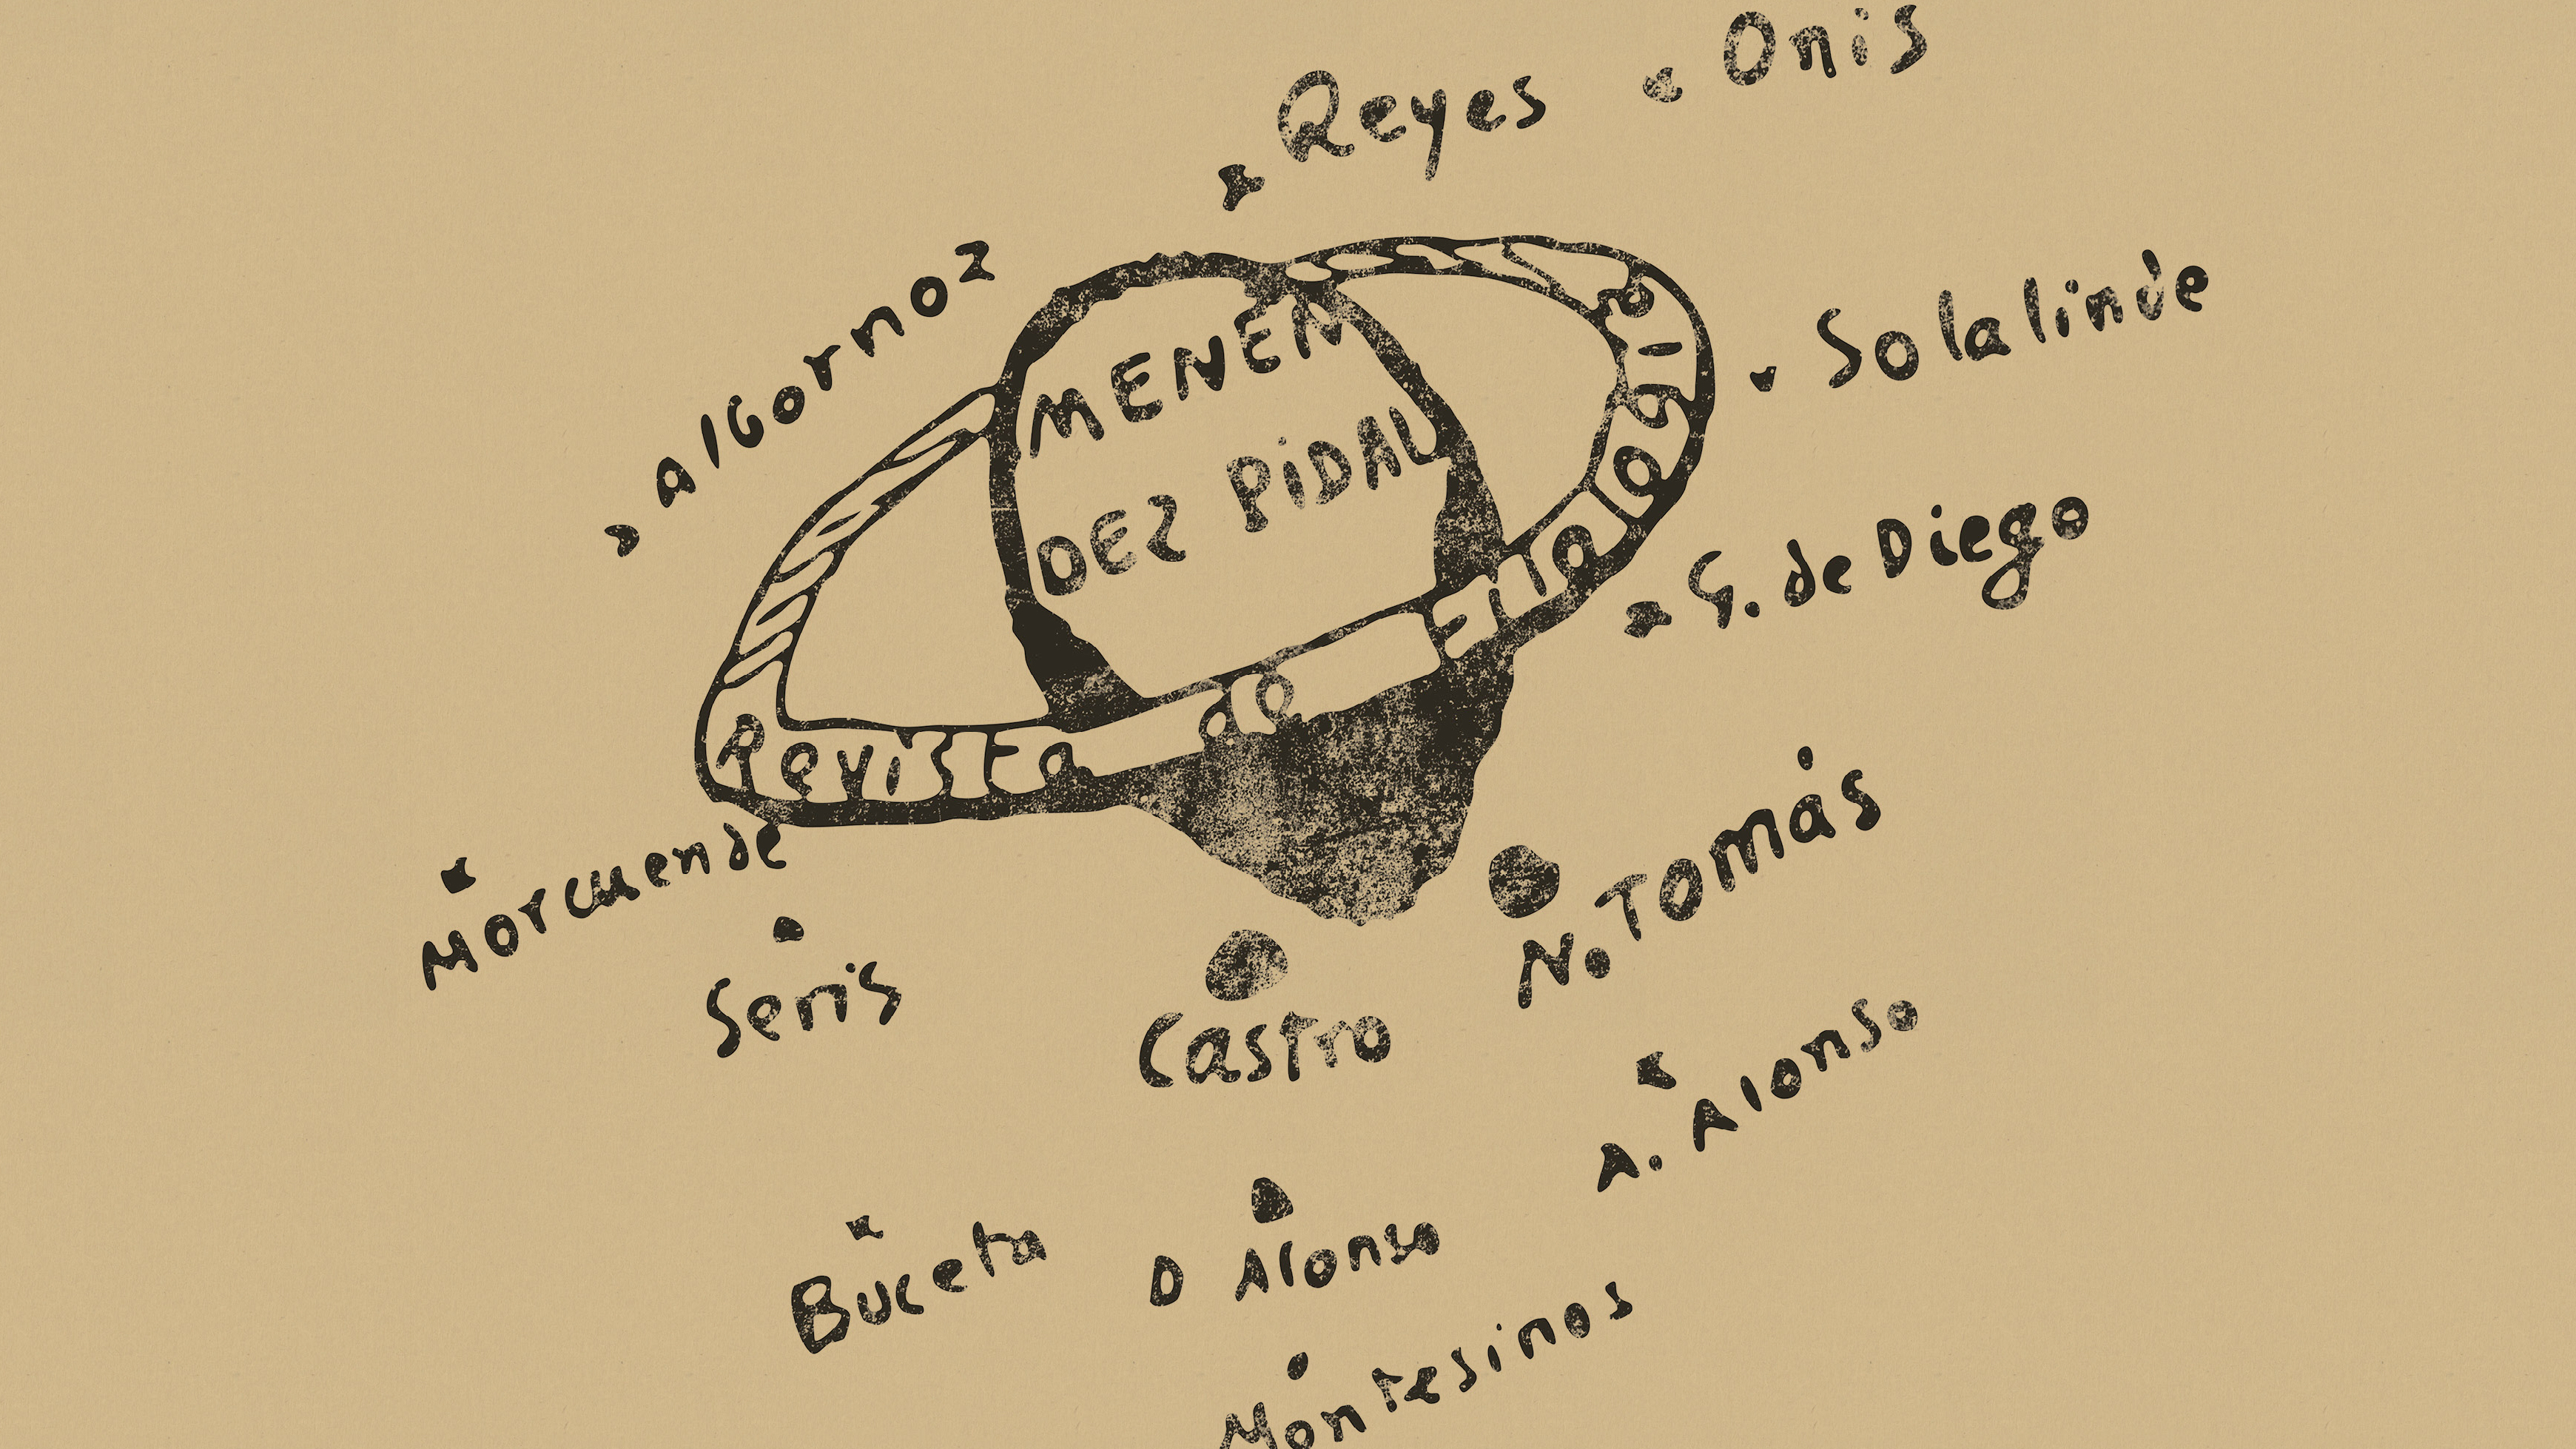 Onis
Reyes
Solalinde
algornoz
MENEN
DEZ PIDAL
G. de Diego
Revista de Filología
N. Tomás
Morcuende
Seris
Castro
A. Alonso
Buceta
D Alonso
Montesinos